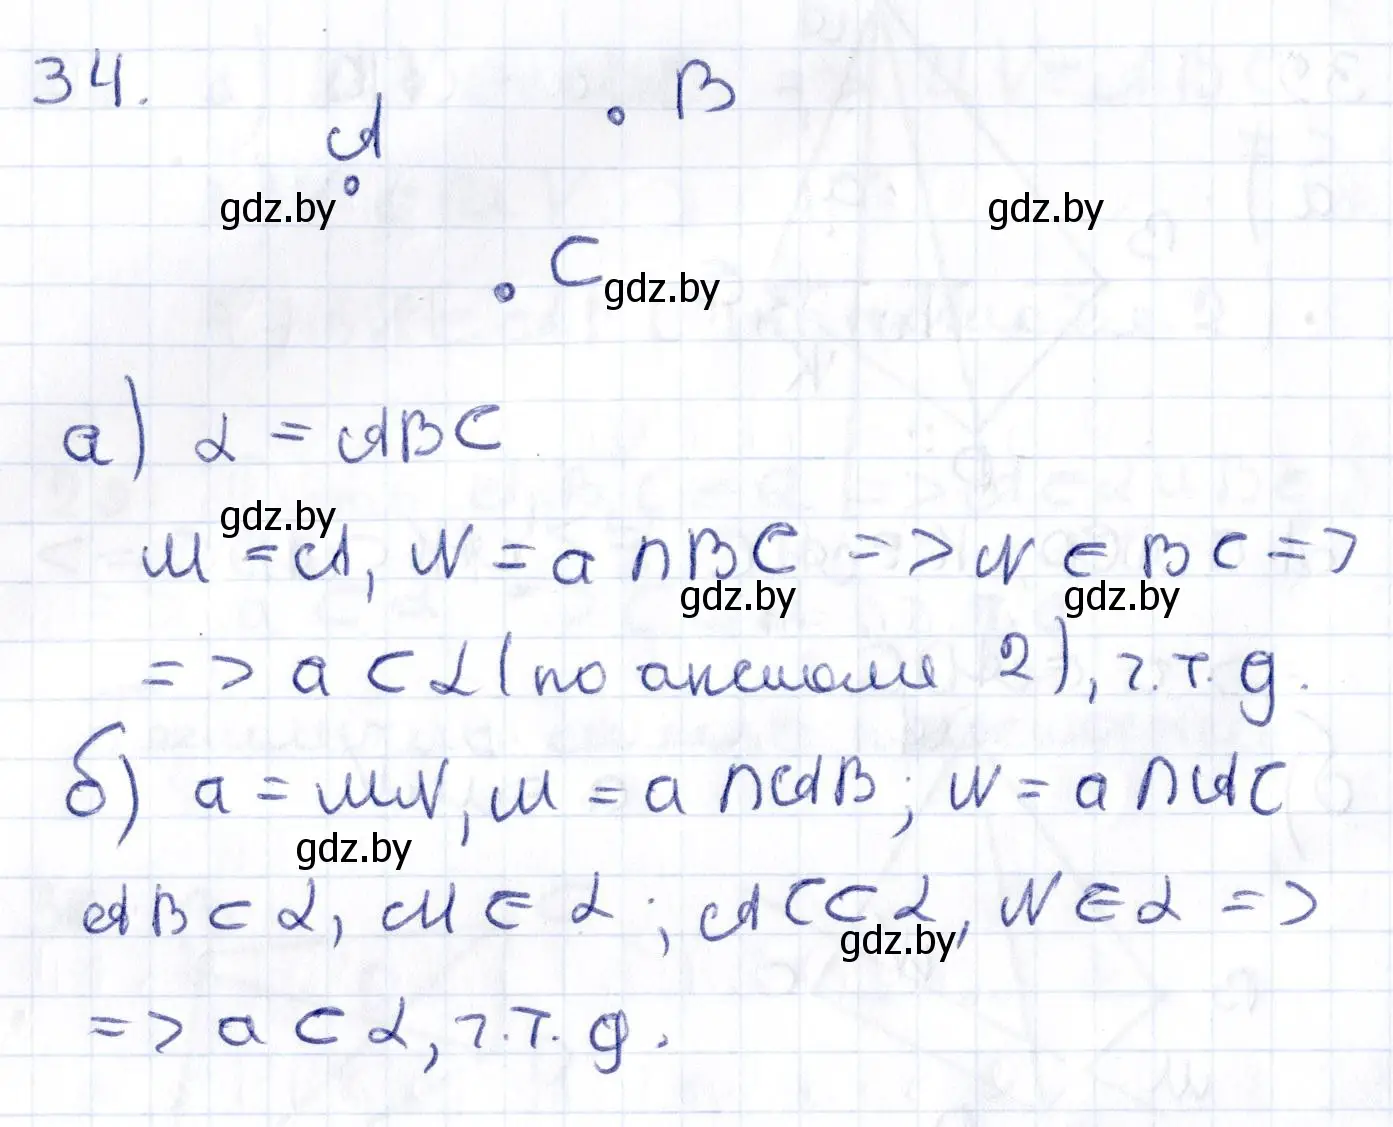 34.
B
A
gdz.by gdz.by
C
gdz.by
а) α = ABC
gdz.by
M = A, N = a ∩ BC => N ∈ BC =>
gdz.by gdz.by
=> a ⊂ α (по аксиоме 2), ч.т.д.
б) a = MN, M = a ∩ AB; N = a ∩ AC
gdz.by
AB ⊂ α, M ∈ α; AC ⊂ α, N ∈ α =>
gdz.by
=> a ⊂ α, ч.т.д.